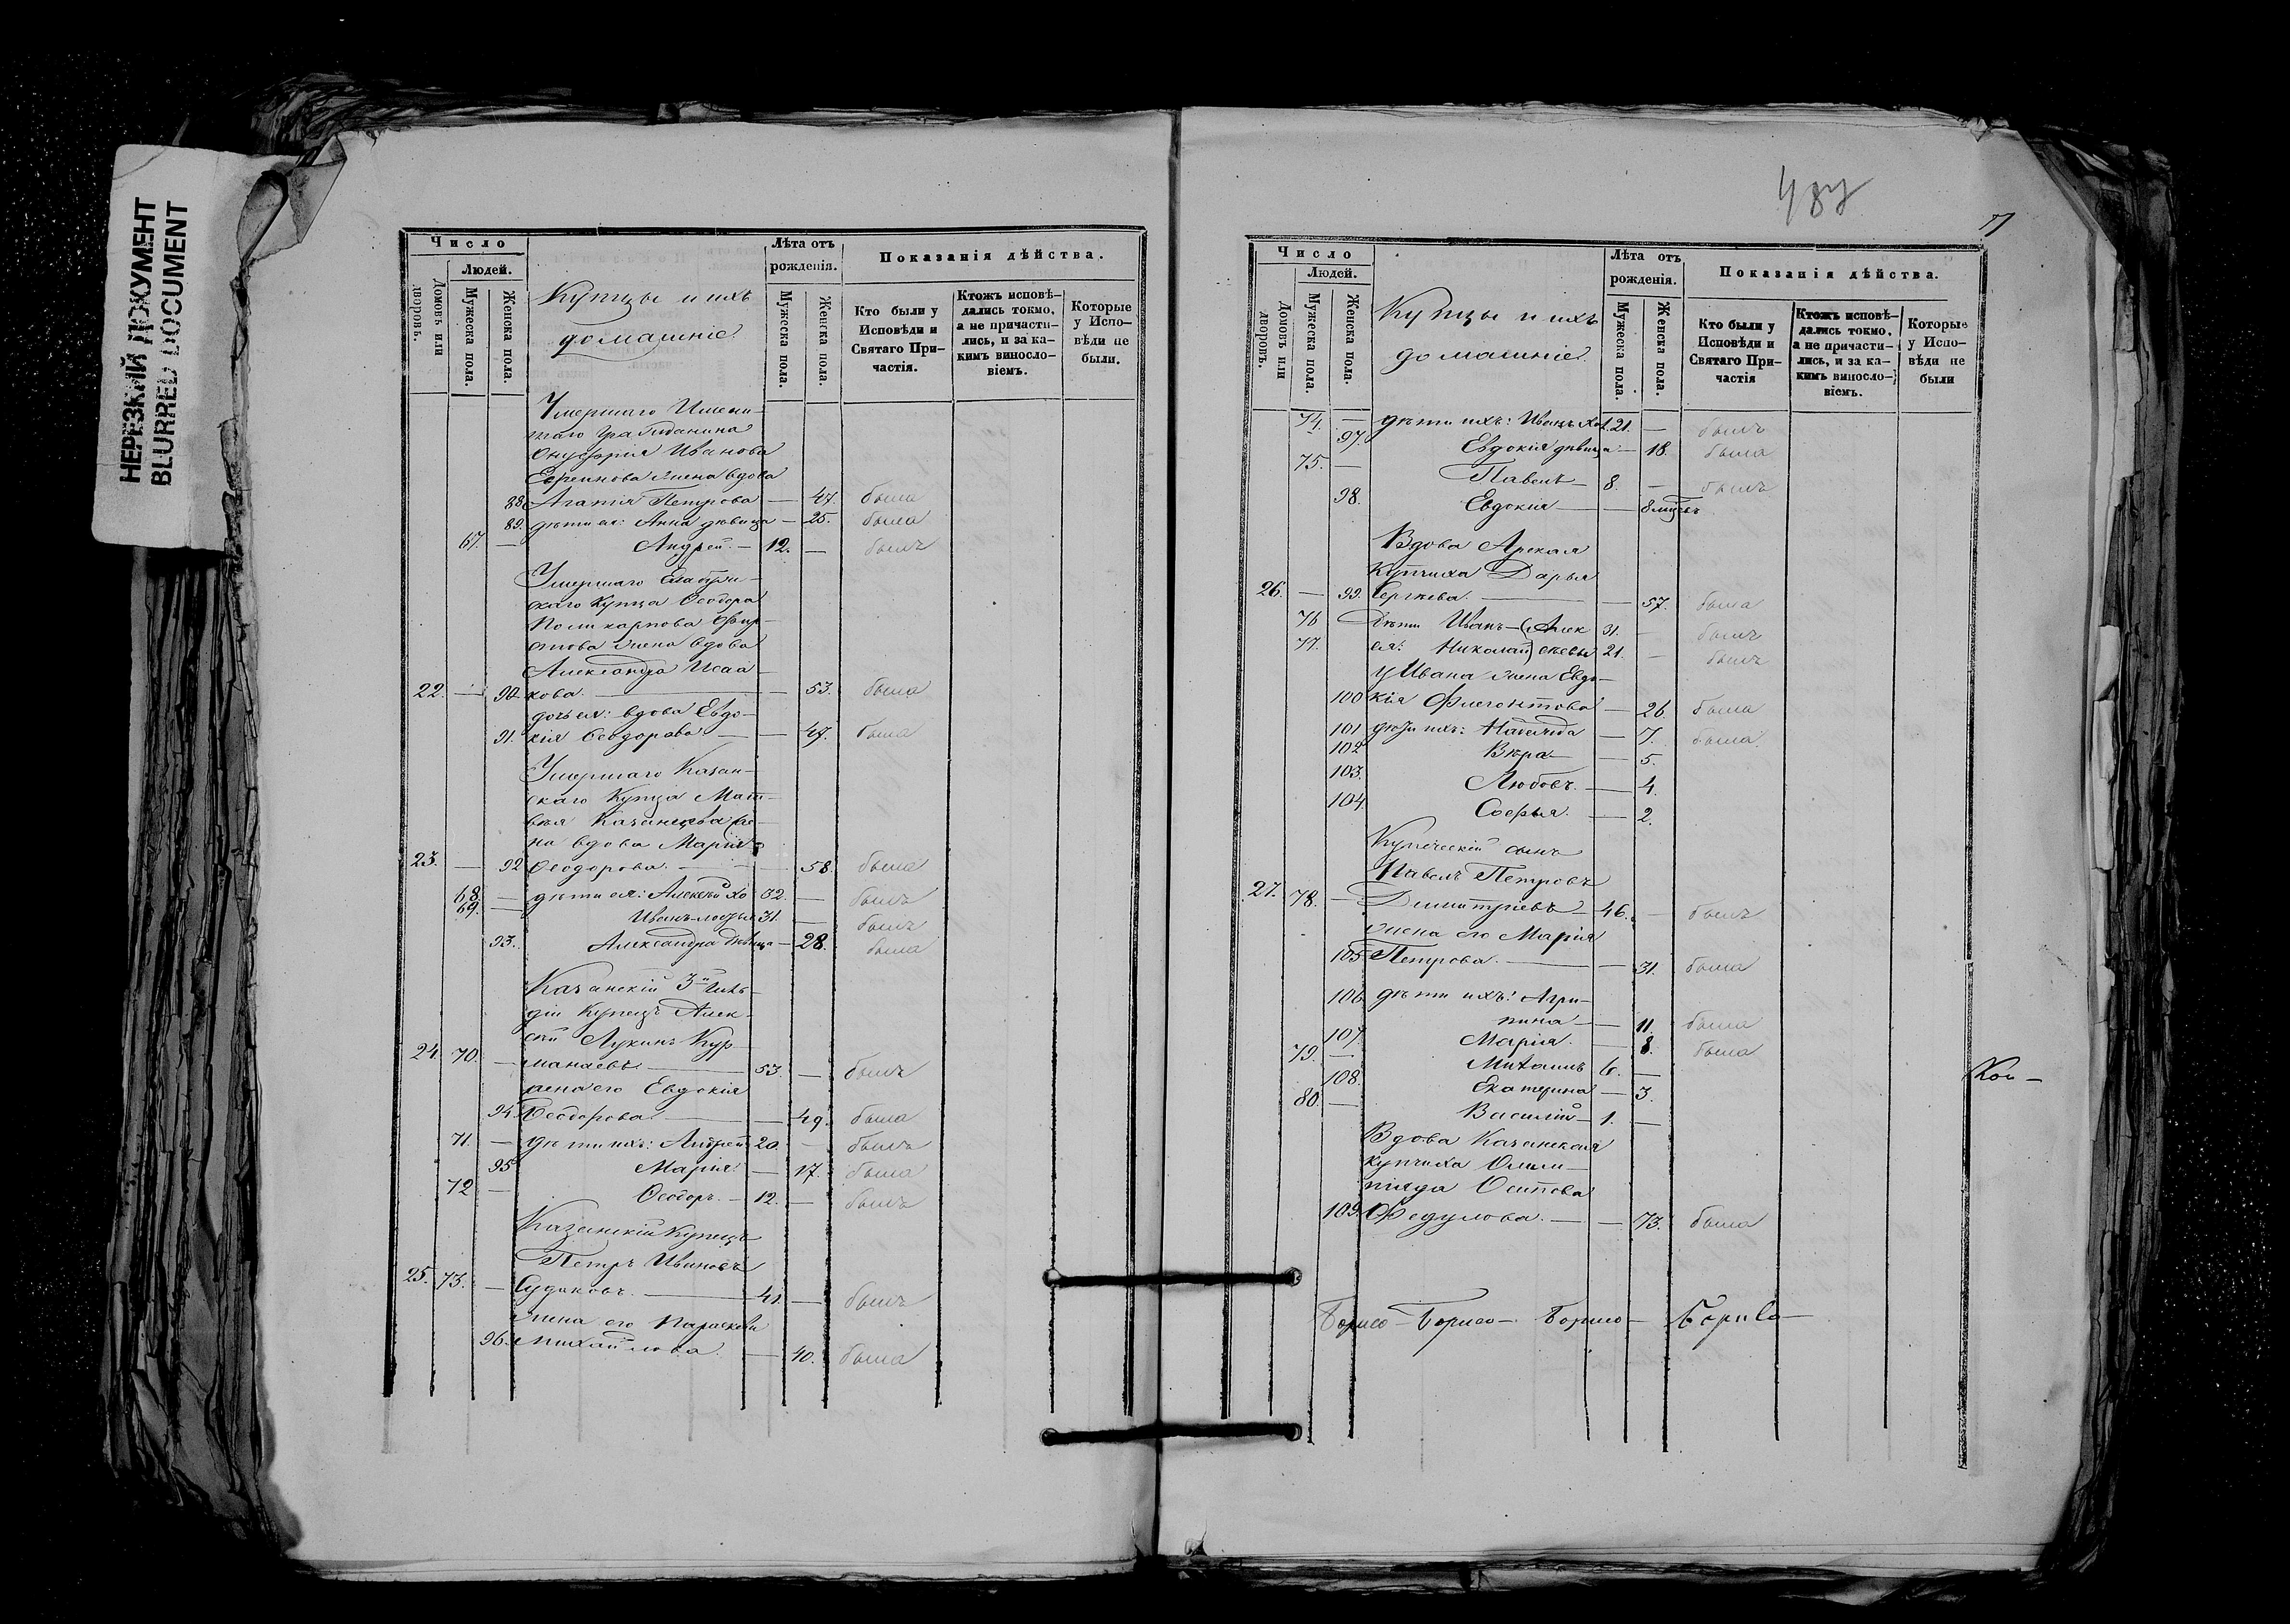 НЕРЕЗКИЙ ДОКУМЕНТ
BLURRED DOCUMENT
Число
Людей.
Домовъ или дворовъ.
Мужеска пола.
Женска пола.
Купцы и ихъ
домашніе.
Лѣта отъ
рожденія.
Мужеска пола.
Женска пола.
Показанія дѣйства.
Кто были у
Исповѣди и
Святаго При-
частія.
Ктожъ исповѣ-
дались токмо,
а не причасти-
лись, и за ка-
кимъ винosло-
віемъ.
Которые
у Испо-
вѣди не
были.
Умершаго Имени-
таго Гражданина
Онуфрія Иванова
жена вдова
88. Агапія Петрова — 47. была
89. дѣти ея: Анна дѣвица — 25. была
67. — Андрей — 12. — былъ
Умершаго
скаго Купца Ѳеодора
Поликарпова Фир-
стова жена вдова
Александра Исаа-
22. — 90. кова. — 53. была
дочь ея: вдова Евдо-
91. кія Ѳеодорова — 47. была
Умершаго Казан-
скаго Купца Мат-
вѣя же-
на вдова Марія
23. — 92 Ѳеодорова. — 58. была
68. — дѣти ея: Алексѣй хо 32. — былъ
69. — Иванъ 31. — былъ
93. Александра дѣвица — 28. была
Казанскій 3й Гиль-
діи Купецъ Алек-
сѣй Лукинъ Кур-
24. 70. — манаевъ 53. — былъ
жена его Евдокія
94. Ѳеодорова — 49. была
71. — дѣти ихъ: Андрей 20. — былъ
95 Марія — 17. была
72 — Ѳеодоръ. — 12. — былъ
Казанскій Купецъ
Петръ Ивановъ
25. 73. — Судаковъ. 41. — былъ
жена его Параскева
96. Михайлова. — 40. была
487
Число
Людей.
Домовъ или дворовъ.
Мужеска пола.
Женска пола.
Купцы и ихъ
домашніе.
Лѣта отъ
рожденія.
Мужеска пола.
Женска пола.
Показанія дѣйства.
Кто были у
Исповѣди и
Святаго При-
частія
Ктожъ исповѣ-
дались токмо,
а не причасти-
лись, и за ка-
кимъ винosло-
віемъ.
Которые
у Испо-
вѣди не
были
74. — дѣти ихъ: Иванъ хол. 21. — былъ
97. Евдокія дѣвица — 18. была
75. — Павелъ — 8. — былъ
98. Евдокія — 8 мцевъ
Вдова Арская
Купчиха Дарья
26. — 99. Сергѣева. — 57. была
76 Дѣти Иванъ — (Алек 31. — былъ
77. ея: Николай) сѣевы 21. — былъ
у Ивана жена Евдо-
100 кія Флегонтова — 26. была
101 дѣти ихъ: Надежда — 7. была
102 Вѣра — 5.
103. Любовь. — 4.
104. Софья. — 2.
Купеческій сынъ
Павелъ Петровъ
27. 78. — Димитріевъ — 46. — былъ
жена его Марія
105 Петрова. — 31. была
106 дѣти ихъ: Агри-
пина — 11. была
107. Марія. — 8. была
79. — Михаилъ 6. —
108. Екатерина — 3.
80. — Василій — 1. —
Вдова Казанская
купчиха Олим-
піада Осипова
109. Федулова. — 73. была
Борисо — Борисо — Борисо — Борисо —